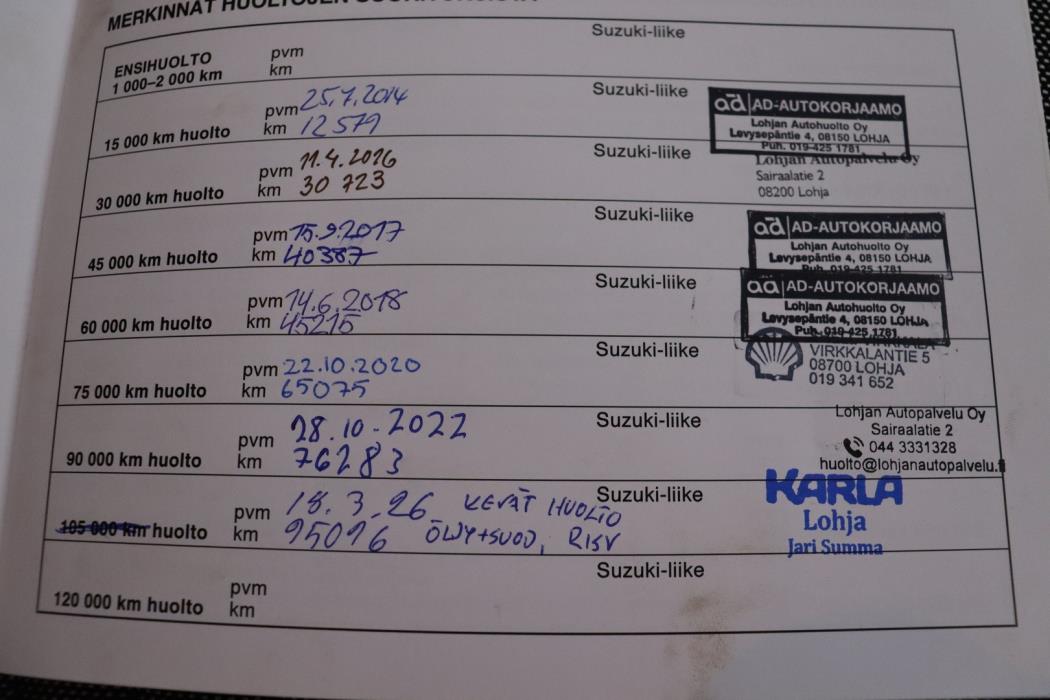 MERKINNÄT HUOLTOJEN SUORITUKSISTA
ENSIHUOLTO
1 000–2 000 km
pvm
km
Suzuki-liike
15 000 km huolto
pvm 25.7.2014
km 12579
Suzuki-liike
ad AD-AUTOKORJAAMO
Lohjan Autohuolto Oy
Levysepäntie 4, 08150 LOHJA
Puh. 019-425 1781
30 000 km huolto
pvm 11.4.2016
km 30 723
Suzuki-liike
Lohjan Autopalvelu Oy
Sairaalatie 2
08200 Lohja
45 000 km huolto
pvm 15.9.2017
km 40387
Suzuki-liike
ad AD-AUTOKORJAAMO
Lohjan Autohuolto Oy
Levysepäntie 4, 08150 LOHJA
Puh. 019-425 1781
60 000 km huolto
pvm 14.6.2018
km 45215
Suzuki-liike
ad AD-AUTOKORJAAMO
Lohjan Autohuolto Oy
Levysepäntie 4, 08150 LOHJA
Puh. 019-425 1781
75 000 km huolto
pvm 22.10.2020
km 65075
Suzuki-liike
VIRKKALANTIE 5
08700 LOHJA
019 341 652
90 000 km huolto
pvm 28.10.2022
km 76283
Suzuki-liike
Lohjan Autopalvelu Oy
Sairaalatie 2
044 3331328
huolto@lohjanautopalvelu.fi
105 000 km huolto
pvm 18.3.26 KEVÄT HUOLTO
km 95096 ÖLJY+SUOD,
Suzuki-liike
KARLA
Lohja
Jari Summa
120 000 km huolto
pvm
km
Suzuki-liike